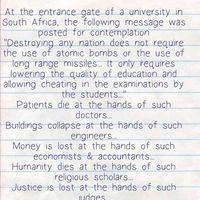 At the entrance gate of a university in
South Africa, the following message was
posted for contemplation
"Destroying any nation does not require
the use of atomic bombs or the use of
long range missiles... It only requires
lowering the quality of education and
allowing cheating in the examinations by
the students..."
Patients die at the hands of such
doctors...
Buildings collapse at the hands of such
engineers...
Money is lost at the hands of such
economists & accountants...
Humanity dies at the hands of such
religious scholars...
Justice is lost at the hands of such
judges...